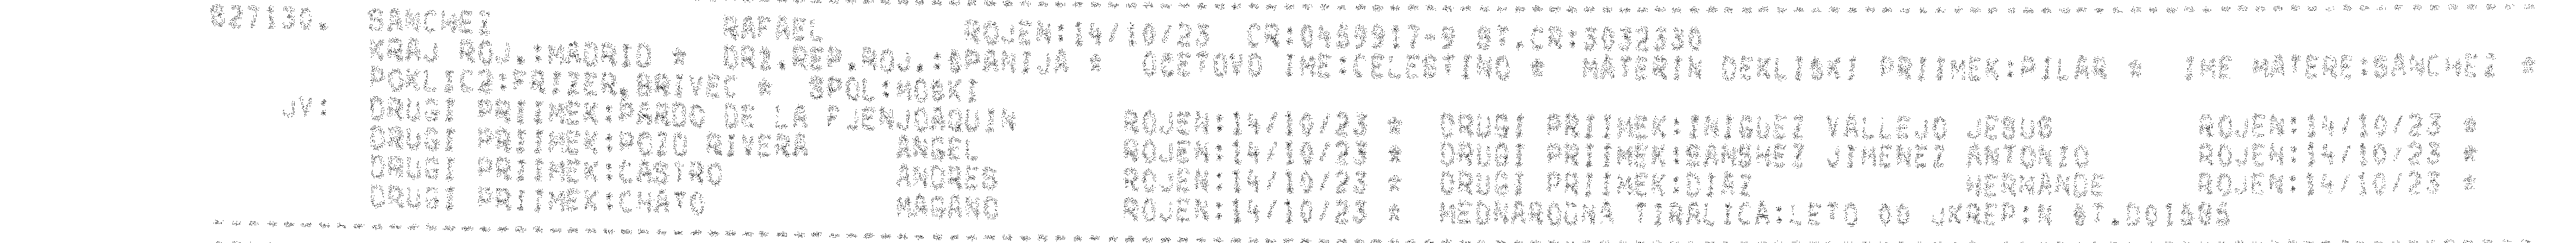 627130. SANCHEZ RAFAEL ROJEN:14/10/23 CR:0459917-9 ST.CR:3032330
KRAJ ROJ.:MADRID * DRZ.REP.ROJ.:SPANIJA * OCETOVO IME:CELESTINO * MATERIN DEKLISKI PRIIMEK:PILAR * IME MATERE:SANCHEZ *
POKLIC2:FRIZER,BRIVEC * SPOL:MOSKI
JV: DRUGI PRIIMEK:PARDO DE LA FJENJOAQUIN ROJEN:14/10/23 * DRUGI PRIIMEK:INIGUEZ VALLEJO JESUS ROJEN:14/10/23 *
DRUGI PRIIMEK:POZO RIVERA ANGEL ROJEN:14/10/23 * DRUGI PRIIMEK:SANSHEZ JIMENEZ ANTONIO ROJEN:14/10/23 *
DRUGI PRIIMEK:CASTRO ANDRES ROJEN:14/10/23 * DRUGI PRIIMEK:DIAZ HERNANDE ROJEN:14/10/23 *
DRUGI PRIIMEK:CHATO MAGANO ROJEN:14/10/23 * MEDNARODNA TIRALICA:LETO 00 JKREP:N ST.D01505